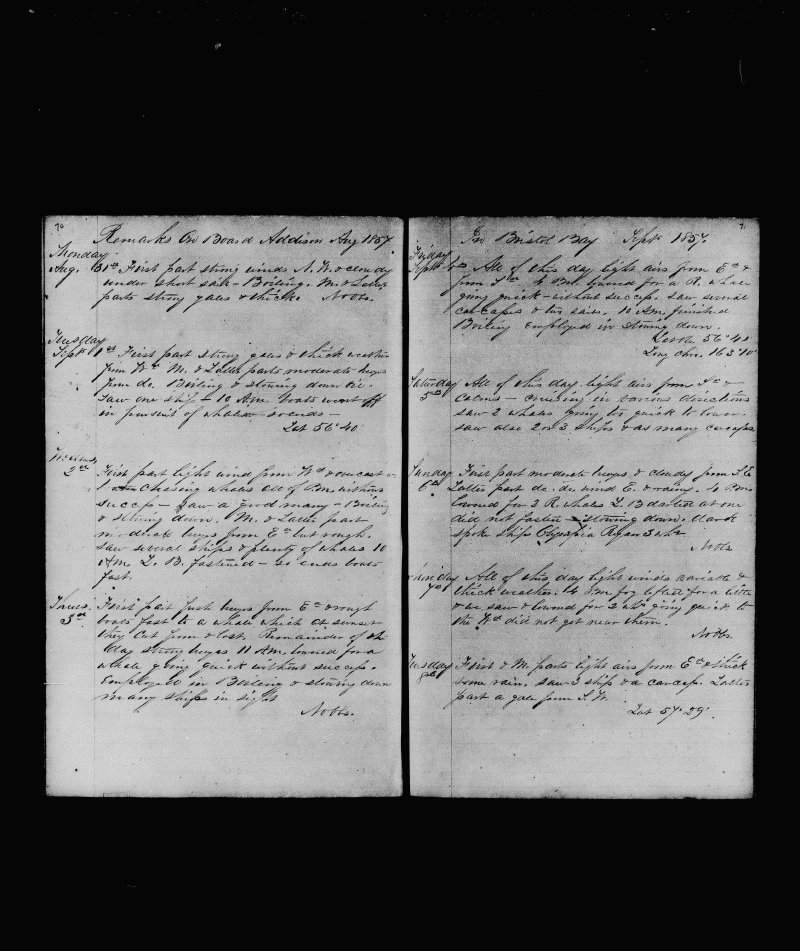 70
Remarks On Board Addison Aug 1857.
Monday
Aug. 31st First part strong winds N.W. & cloudy
under short sail – Boiling. M. & Latter
parts strong gales & thick. No Obs.
Tuesday
Sept 1st First part strong gales & thick weather
from Wd M. & Latter parts moderate breezes
from do. Boiling & stowing down
Saw one ship – 10 A.M. boats went off
in pursuit of whales so ends –
Lat 56°40
2nd First part light wind from Wd & overcast
chasing whales all of P.M. without
success – Saw a good many – Boiling
& stowing down. M. & Latter part
moderate breezes from Ed but rough.
Saw several ships & plenty of whales 10
A.M. L. B. fastened – so ends boats
fast.
Thurs.
3rd First part fresh breezes from Ed & rough
boats fast to a whale which at sunset
they cut from & lost. Remainder of the
day strong breezes 11 A.M. lowered for a
whale going quick without success.
Employed in Boiling & stowing down
many ships in sight
No Obs.
71
In Bristol Bay Sept 1857.
Friday
Sept 4th All of this day light airs from Ed &
from Sd P.M. lowered for a R. whale
going quick – without success. Saw several
carcasses & two sails. 10 A.M. finished
Boiling employed in stowing down.
Lat Ob. 56°40
Long Chr. 163°10
Saturday
5th All of this day light airs from Sd &
calms – cruising in various directions
saw 2 whales going too quick to lower.
saw also 2 or 3 ships & as many carcasses
Sunday
6th First part moderate breezes & cloudy from S.E.
Latter part do. do. wind E. & rainy. 4 P.M.
lowered for 3 R. whales L. B. darted at one
did not fasten – stowing down. dark
spoke ship Olympia Ryan 3 whs
No Obs
Monday
7th All of this day light winds variable &
thick weather. 4 P.M. fog lifted for a little
& we saw & lowered for 2 whs going quick to
the Wd did not get near them.
No Obs.
Tuesday
8th First & M. parts light airs from Ed & thick
some rain. saw 3 ships & a carcass. Latter
part a gale from S.W.
Lat 57°29'